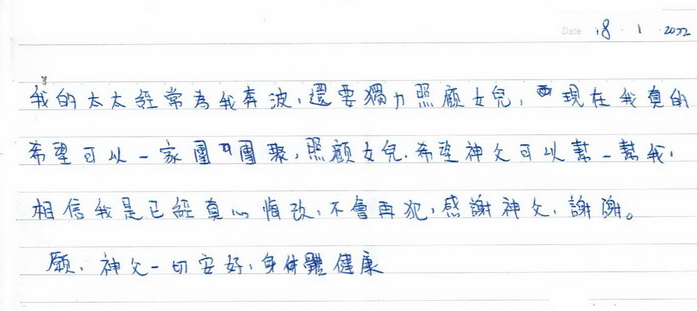 Date 18 · 1 · 2022
我的太太經常為我奔波,還要獨力照顧女兒,現在我真的
希望可以一家團團聚,照顧女兒.希望神父可以幫一幫我,
相信我是已經真心悔改,不會再犯,感謝神父,謝謝。
願,神父一切安好,身体體健康